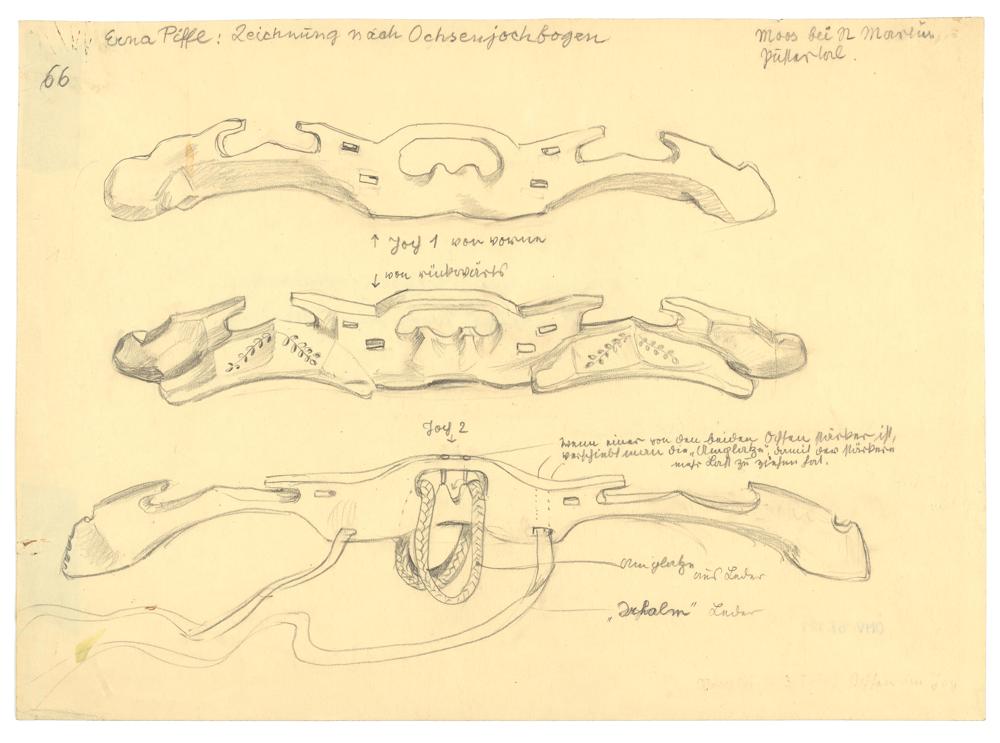 Erna Piffl: Zeichnung nach Ochsenjochbogen
Moos bei St Martin,
Pustertal.
66
↑ Joch 1 von vorne
↓ von rückwärts
Joch 2
↓
Wenn einer von den beiden Ochsen stärker ist,
verschiebt man die „Amplatze", damit der Stärkere
mehr Last zu ziehen hat.
Amplatze
aus Leder
Leder